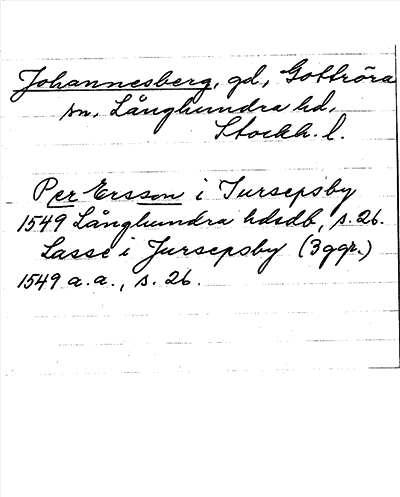 Johannesberg, gd, Gottröra
sn, Långhundra hd,
Stockh. l.
Per Ersson i Jursepsby
1549 Långhundra hdsdb, s. 26.
Lasse i Jursepsby (3 ggr.)
1549 a. a., s. 26.